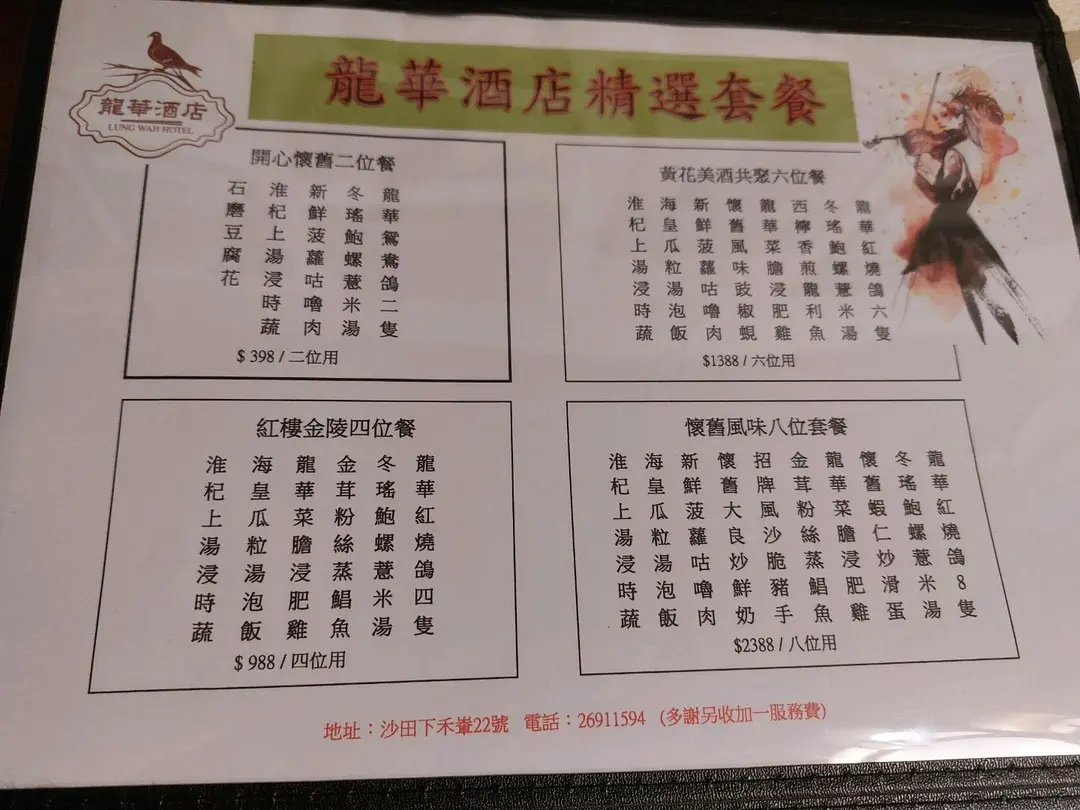 龍華酒店
LUNG WAH HOTEL
龍華酒店精選套餐
開心懷舊二位餐
龍華鴛鴦鴿二隻
冬瑤鮑螺薏米湯
新鮮菠蘿咕嚕肉
淮杞上湯浸時蔬
石磨豆腐花
$ 398 / 二位用
黃花美酒共聚六位餐
龍華紅燒鴿六隻
冬瑤鮑螺薏米湯
西檸香煎龍利魚
龍華菜膽浸肥雞
懷舊風味豉椒蜆
新鮮菠蘿咕嚕肉
海皇瓜粒湯泡飯
淮杞上湯浸時蔬
$1388 / 六位用
紅樓金陵四位餐
龍華紅燒鴿四隻
冬瑤鮑螺薏米湯
金茸粉絲蒸鯧魚
龍華菜膽浸肥雞
海皇瓜粒湯泡飯
淮杞上湯浸時蔬
$ 988 / 四位用
懷舊風味八位套餐
龍華紅燒鴿8隻
冬瑤鮑螺薏米湯
懷舊蝦仁炒滑蛋
龍華菜膽浸肥雞
金茸粉絲蒸鯧魚
招牌風沙脆豬手
懷舊大良炒鮮奶
新鮮菠蘿咕嚕肉
海皇瓜粒湯泡飯
淮杞上湯浸時蔬
$2388 / 八位用
地址：沙田下禾輋22號 電話：26911594 (多謝另收加一服務費)